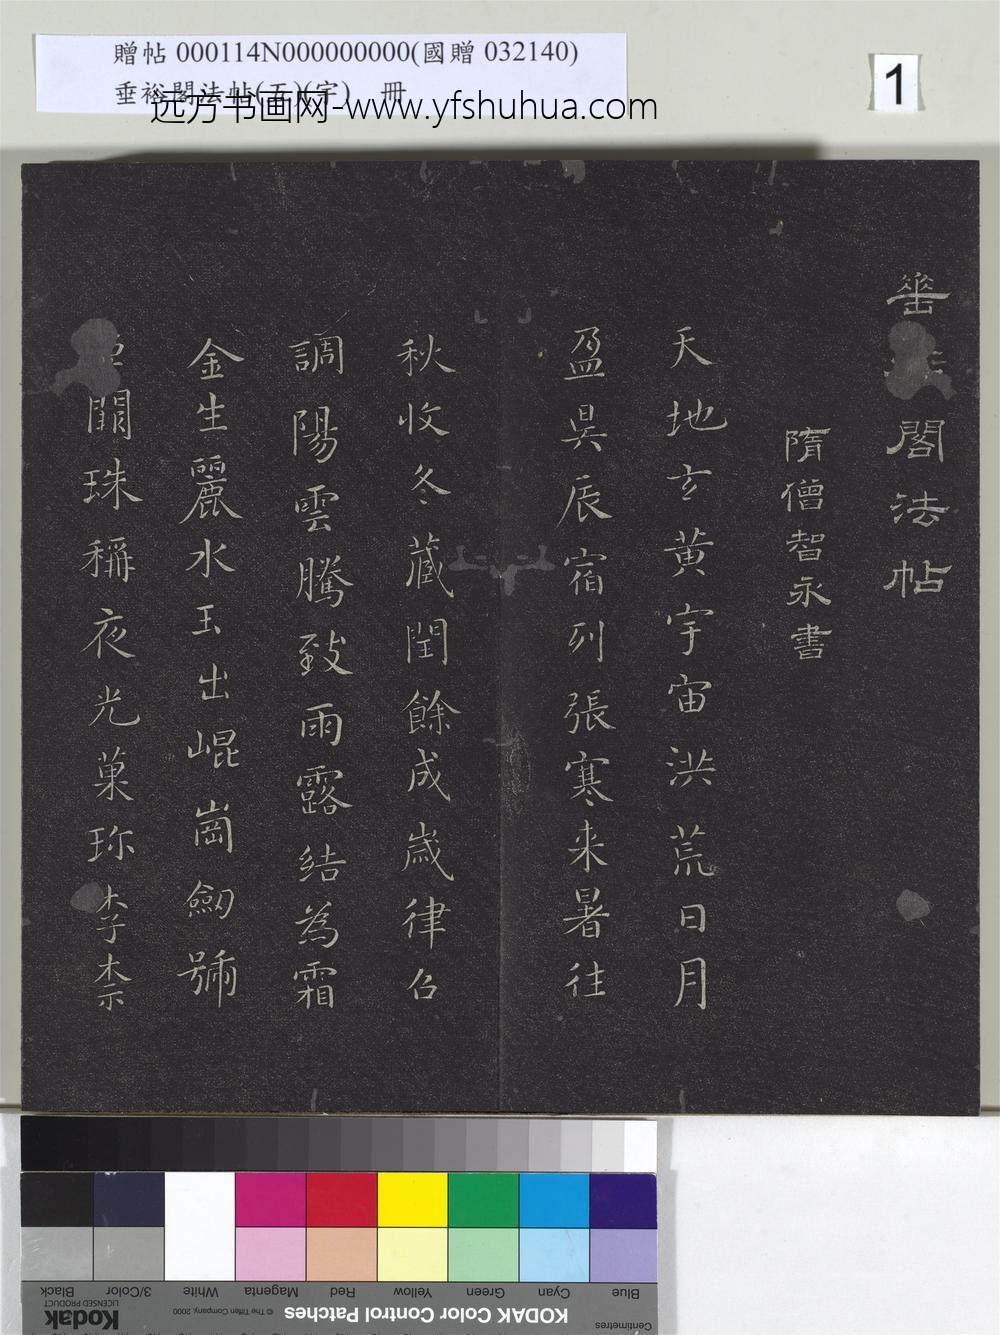 贈帖 000114N000000000(國贈 032140)
垂裕閣法帖(五)(宇) 冊
远方书画网-www.yfshuhua.com
1
垂 閣法帖
隋僧智永書
天地玄黄宇宙洪荒日月
盈昃辰宿列張寒来暑往
秋收冬蔵閏餘成歲律召
調陽雲騰致雨露結為霜
金生麗水玉出崐崗劒號
闕珠稱夜光菓珎李柰
Black
3/Color
White
Magenta
Red
Yellow
Green
Cyan
Blue
Kodak
LICENSED PRODUCT
© The Tiffen Company, 2000
KODAK Color Control Patches
Centimetres